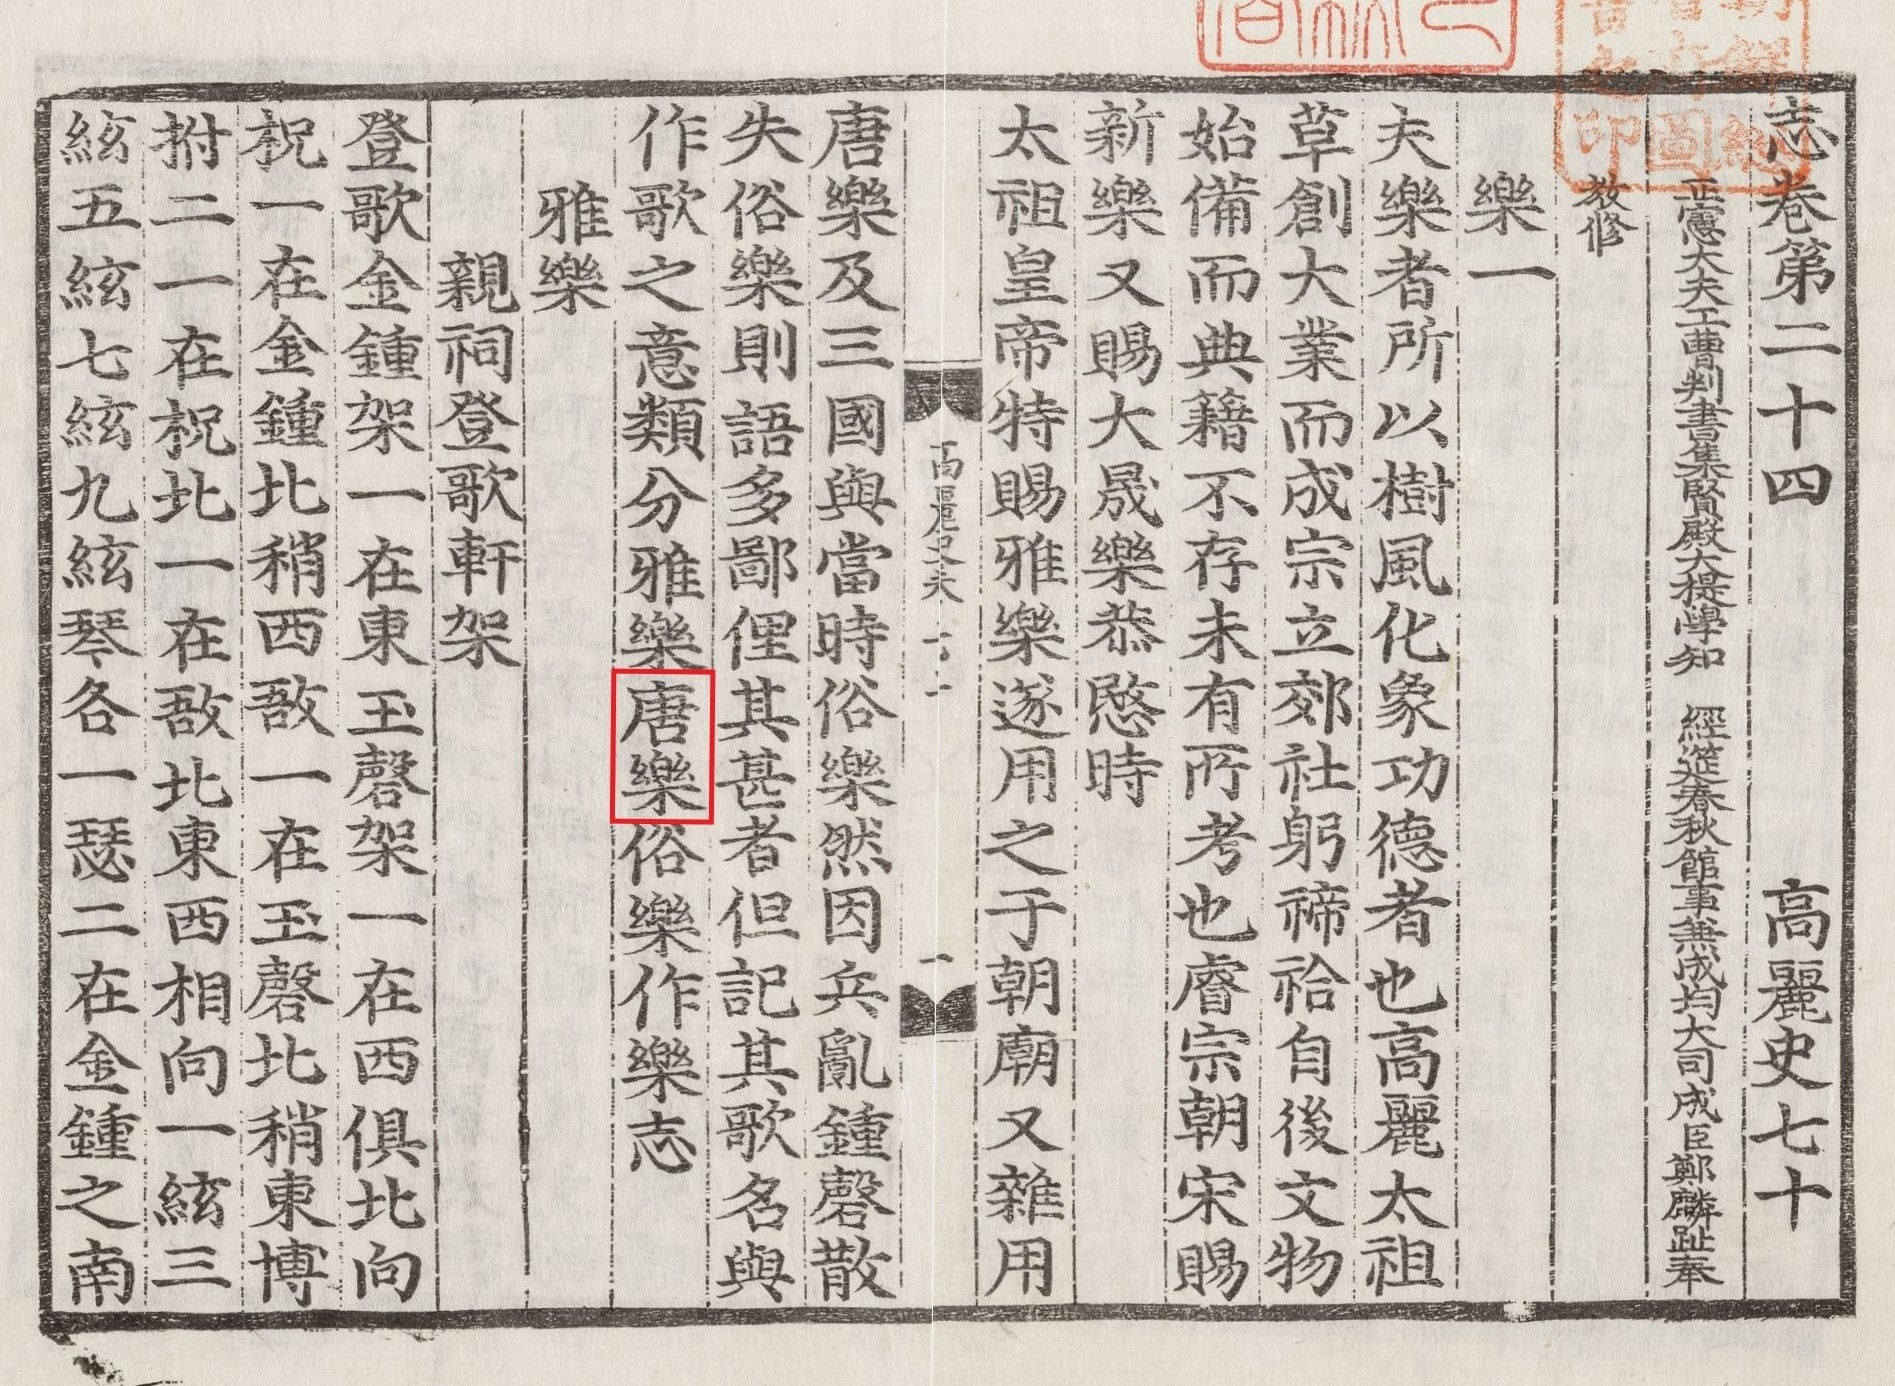 志卷第二十四 高麗史七十
正憲大夫工曹判書集賢殿大提學知 經筵春秋館事兼成均大司成臣鄭麟趾奉
敎修
樂一
夫樂者所以樹風化象功德者也高麗太祖
草創大業而成宗立郊社躬禘祫自後文物
始備而典籍不存未有所考也睿宗朝宋賜
新樂又賜大晟樂恭愍時
太祖皇帝特賜雅樂遂用之于朝廟又雜用
唐樂及三國與當時俗樂然因兵亂鍾磬散
失俗樂則語多鄙俚其甚者但記其歌名與
作歌之意類分雅樂唐樂俗樂作樂志
雅樂
親祠登歌軒架
登歌金鍾架一在東玉磬架一在西俱北向
柷一在金鍾北稍西敔一在玉磬北稍東博
拊二一在柷北一在敔北東西相向一絃三
絃五絃七絃九絃琴各一瑟二在金鍾之南